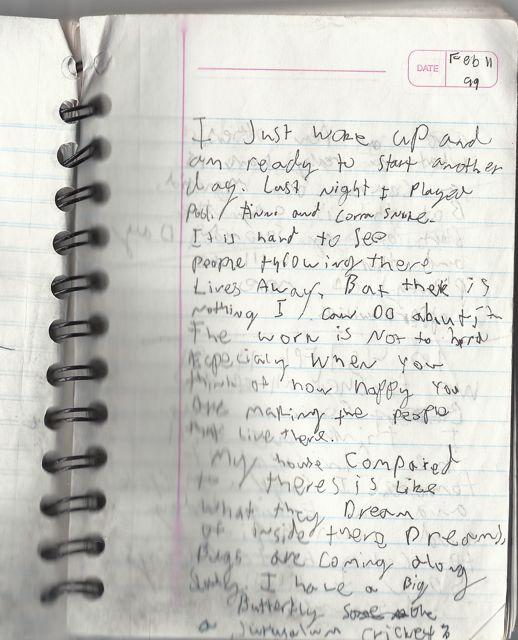 DATE
Feb 11
99
I Just woke up and
am ready to start another
day. Last night I Played
Pool. Anna and Corra smoke.
It is hard to see
people throwing there
Lives Away. But there is
nothing I can DO about it
The work is Not to hard
Especialy When you
think of how happy you
are making the people
that live there.
My house Compared
to theres is Like
what they Dream
of inside there Dreams,
Bugs are coming along
Slowly. I have a Big
Butterfly some
a Jerusalem cricket?